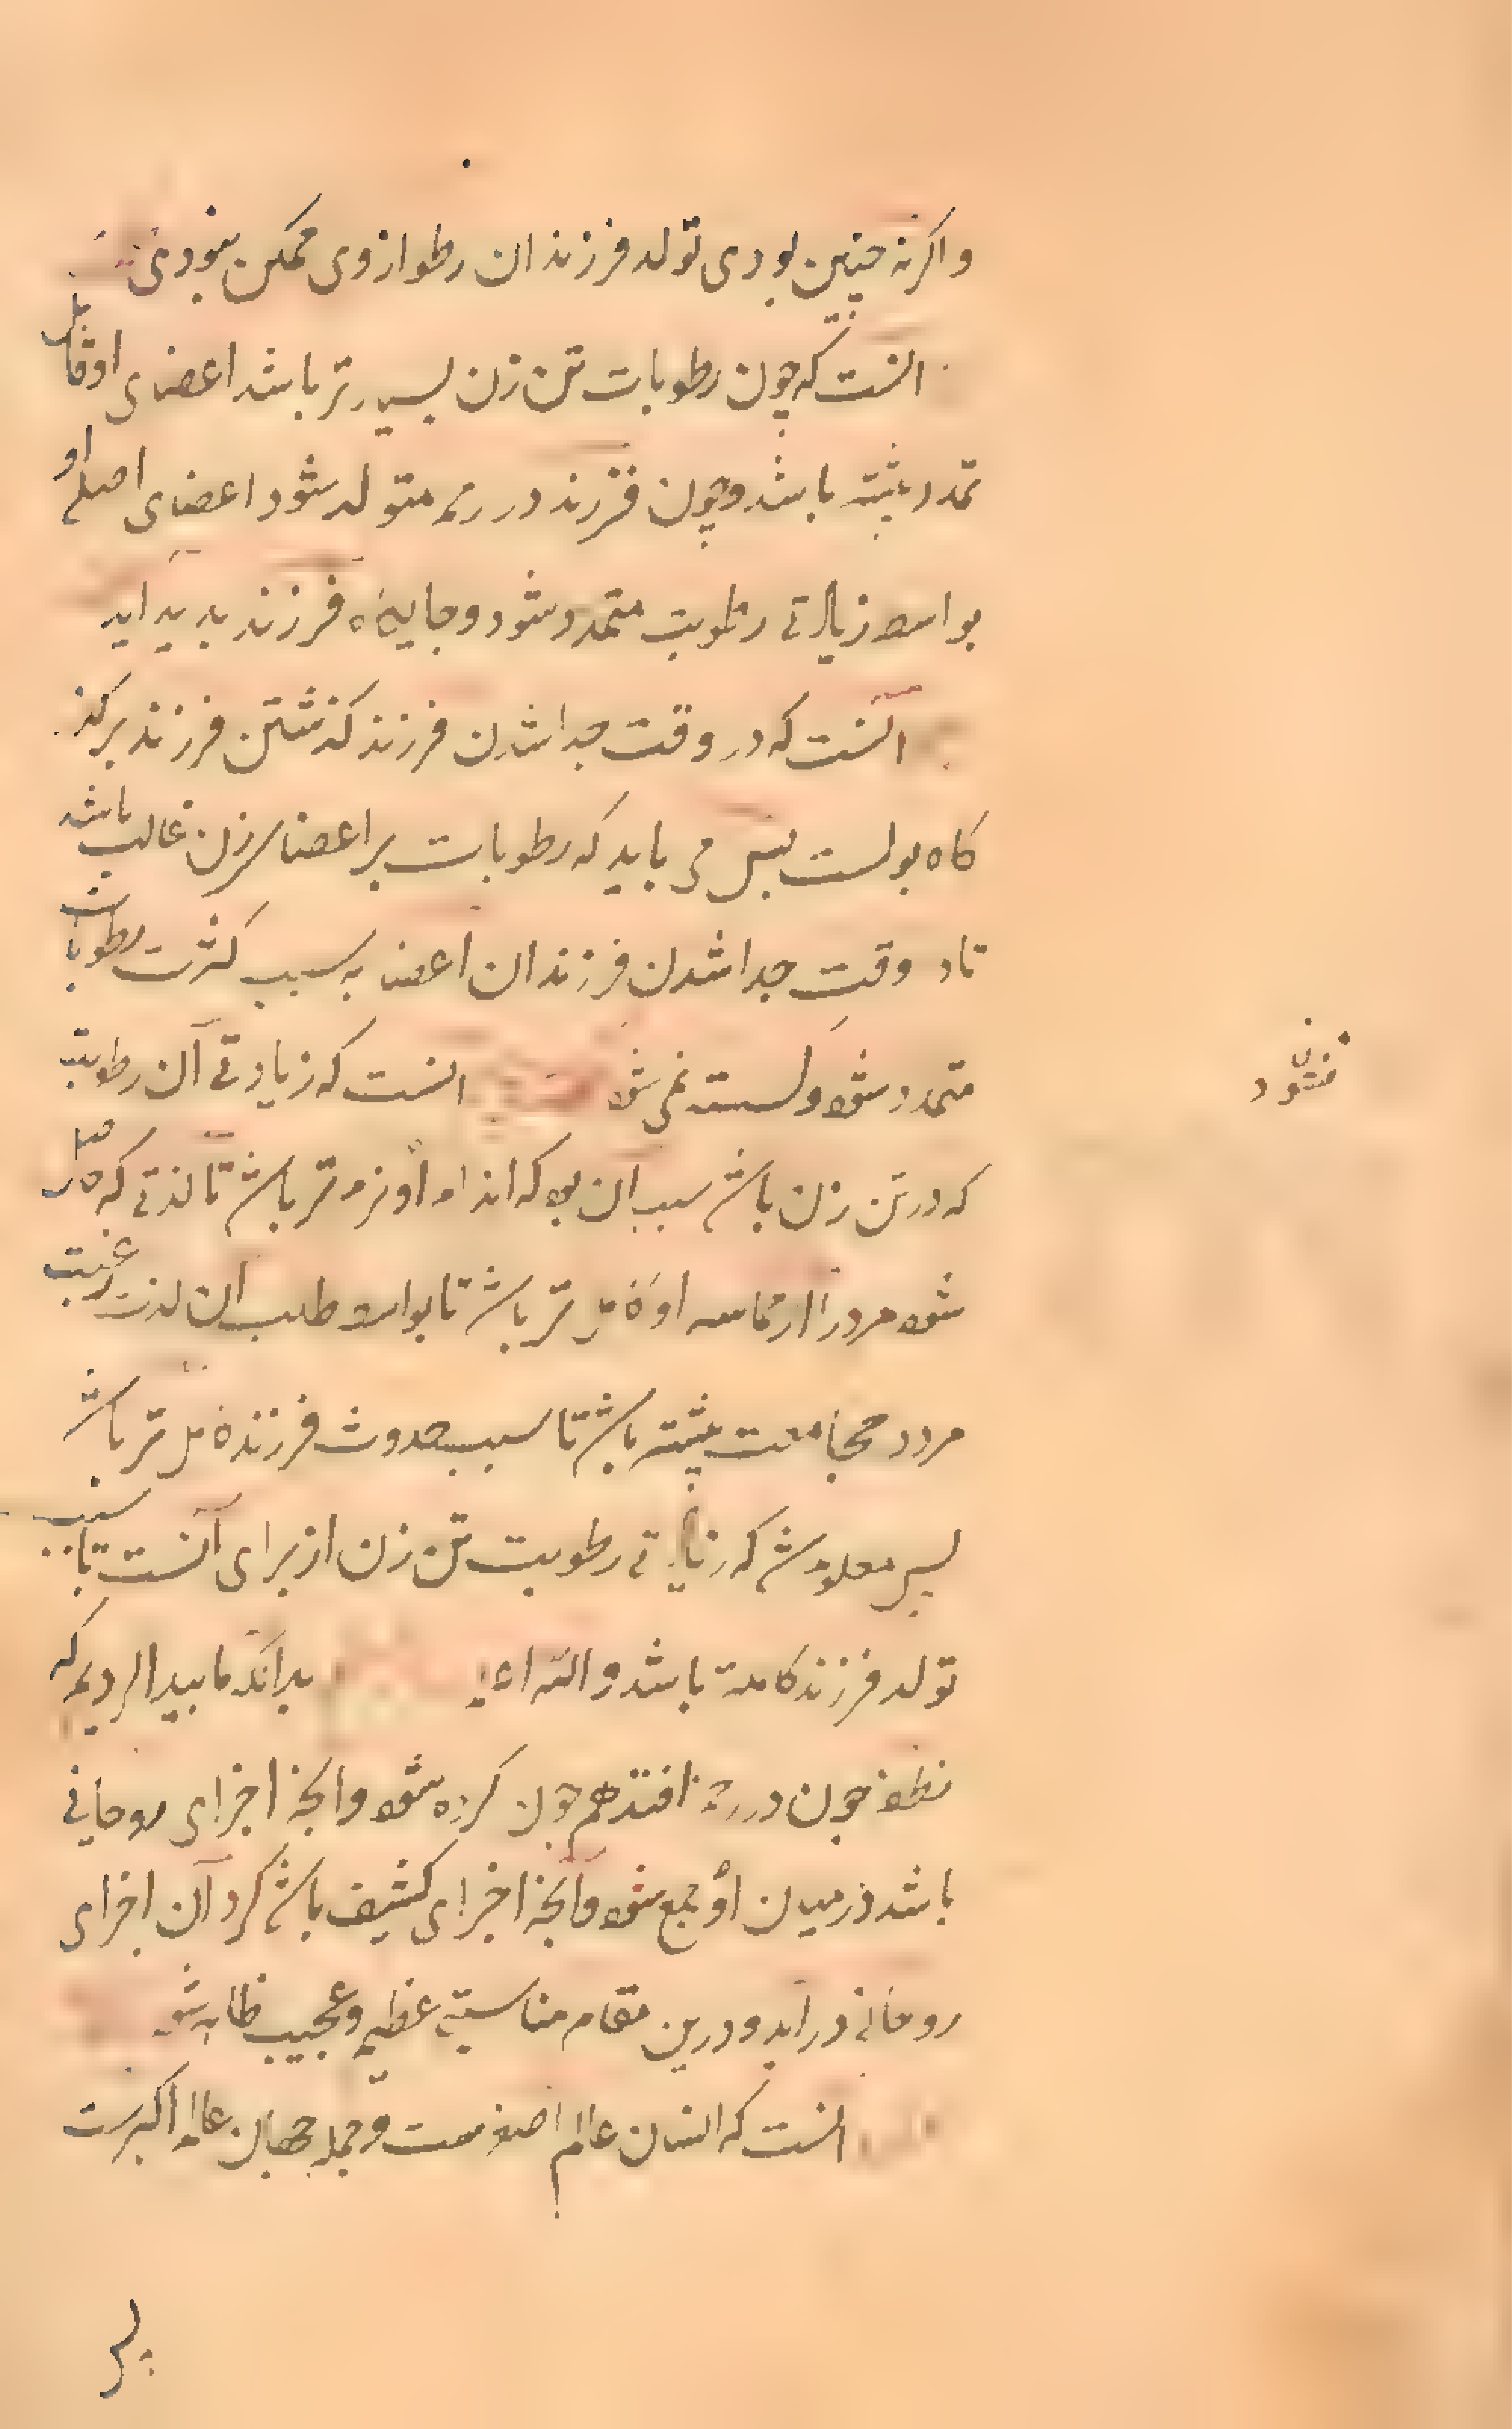 واکر نه چنین بودی تولد فرزندان رطوازوی ممکن نبودی
انست که چون رطوبات تن زن بسیارتر باشد اعضای او قابل
تمدد بیشتر باشد و چون فرزند در رحم متولد شود اعضای اصلی او
بواسطه زیادتی رطوبت متمدد شود و جایکاه فرزند بدید اید
آنست که در وقت جدا شدن فرزند کذشتن فرزند بر کذر
کاه بولست بس می باید که رطوبات بر اعضاء زن غالب باشد
تا در وقت جدا شدن فرزند ان اعضا به سبب کثرت رطوبات
متمدد شود و کسسته نمی شود انست که زیادتی آن رطوبت
که در تن زن باشد سبب ان بود که اندام او نرم تر باشد تا لذتی که حاصل
شود مرد را از مماسه او کامل تر باشد تا بواسطه طلب ان لذت رغبت
مرد در مجامعت بیشتر باشد تا سبب حدوث فرزند کامل تر باشد
پس معلوم شد که زیادتی رطوبت تن زن از برای آنست تا سبب
تولد فرزند کاملتر باشد والله اعلم بدانکه ما بیدا کردیم که
نطفه چون در رحم افتد هم چون کره شود و انچه اجزای روحانی
باشد در میان او جمع شود و آنچه اجزای کثیف باشد کرد آن اجزای
روحانی در آید و درین مقام مناسبتی عظیم و عجیب ظاهر شود
انست که انسان عالم اصغرست و جمله جهان عالم اکبرست
پس
نشود